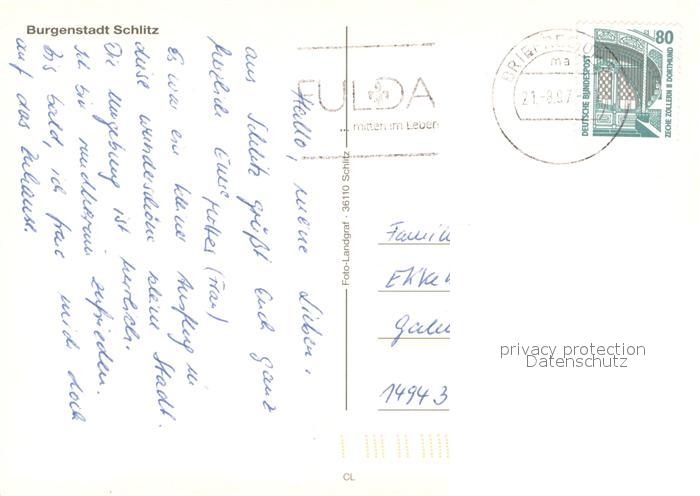 Burgenstadt Schlitz
Hallo, meine Lieben,
aus Schlitz grüßt Euch ganz
herzlich Eure Mutter (Frau)
Es war ein kleiner Ausflug in
diese wunderschöne kleine Stadt.
Die Umgebung ist herrlich.
Ich bin rundherum zufrieden.
Bis bald, ich freu mich doch
auf das Zuhause.
Foto-Landgraf · 36110 Schlitz
FULDA
... mitten im Leben
BRIEFREGION
ma
21.-8.97
80
DEUTSCHE BUNDESPOST
ZECHE ZOLLERN II DORTMUND
Famili
Ekke
Gali
14943
privacy protection
Datenschutz
CL